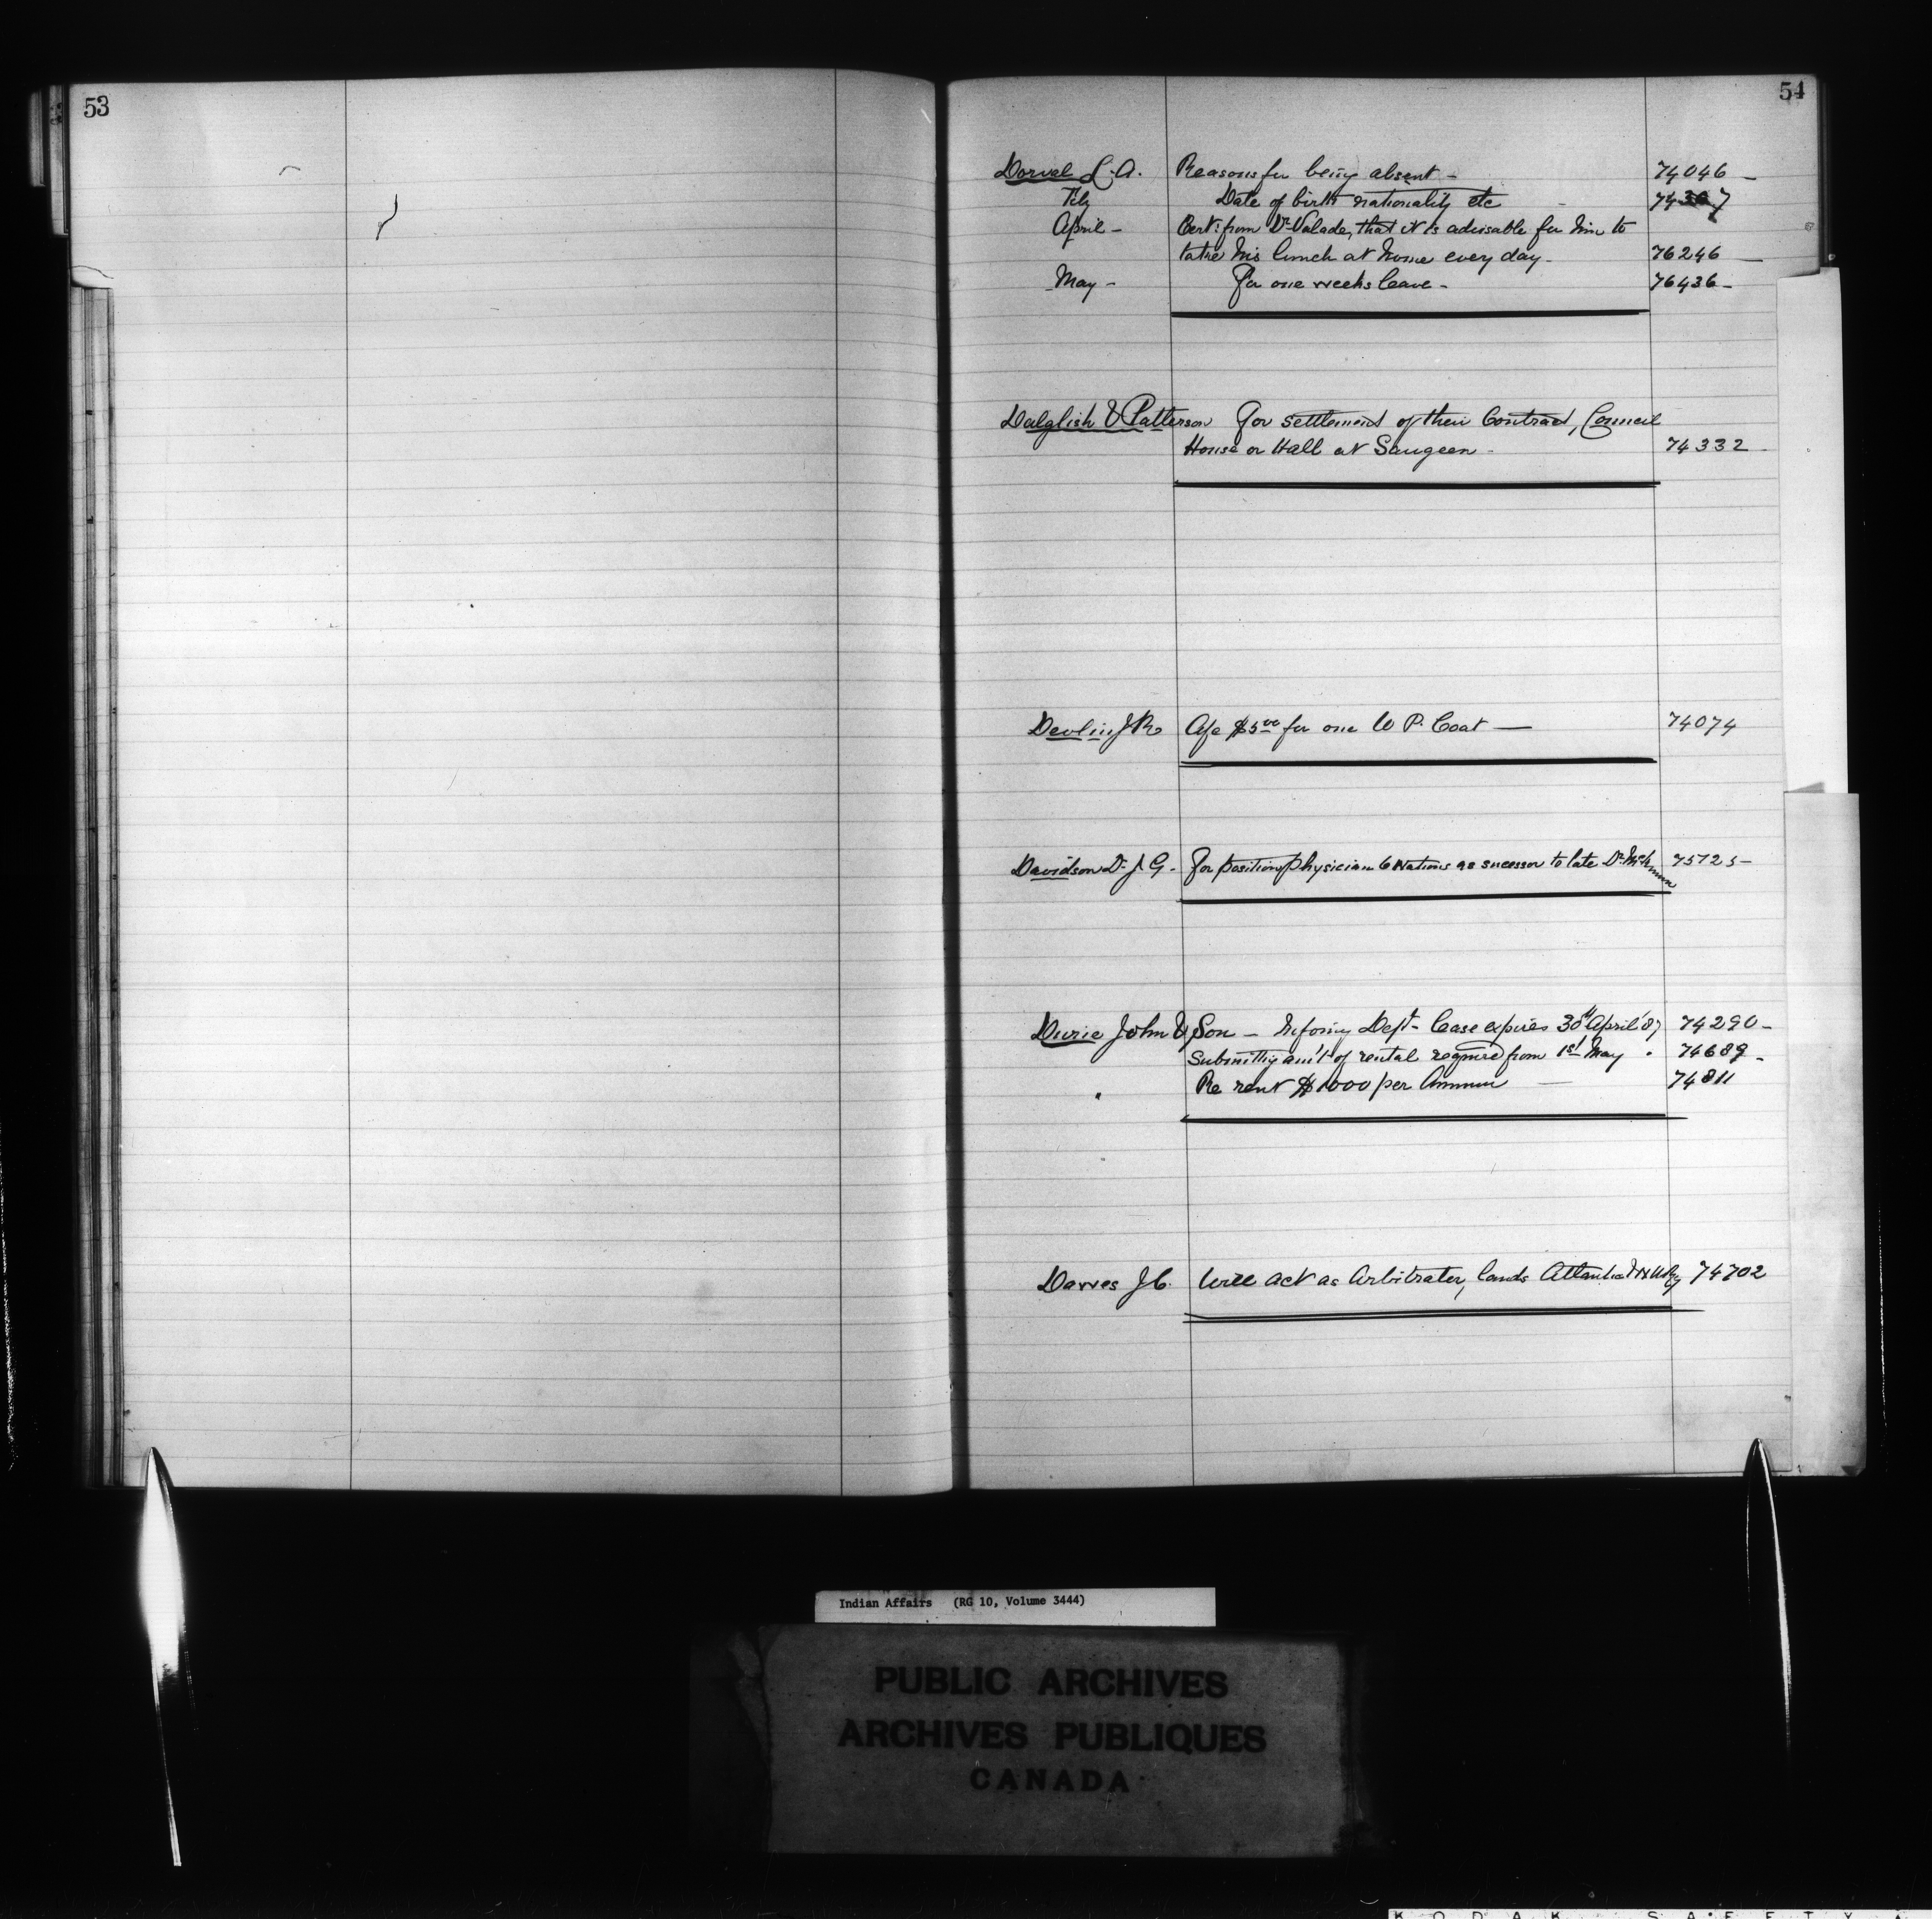 53
54
Dorval L. A. Reasons for being absent - 74046 -
Feby Date of birth nationality etc - 74
April - Cert: from Dr Valade, that it is advisable for him to
take his lunch at home every day - 76246
May - For one weeks leave - 76436 -
Dalglish & Patterson For settlement of their Contract, Council
House or Hall at Saugeen - 74332 -
Devlin J R Ape $5.00 for one W P. Coat — 74074
Davidson Dr J. G. - For position physician 6 Nations as sucessor to late Dr 75725 -
Durie John & Son - Informg Dept - lease expires 30th April '87 74290 -
Submittg am't of rental require from 1st May . 74689 -
" Re rent $1000 per Annum — 74811
Dawes J C. Will act as Arbitrater, lands Atlantic & N W Ry 74702
Indian Affairs (RG 10, Volume 3444)
PUBLIC ARCHIVES
ARCHIVES PUBLIQUES
CANADA
KODAK SAFETY